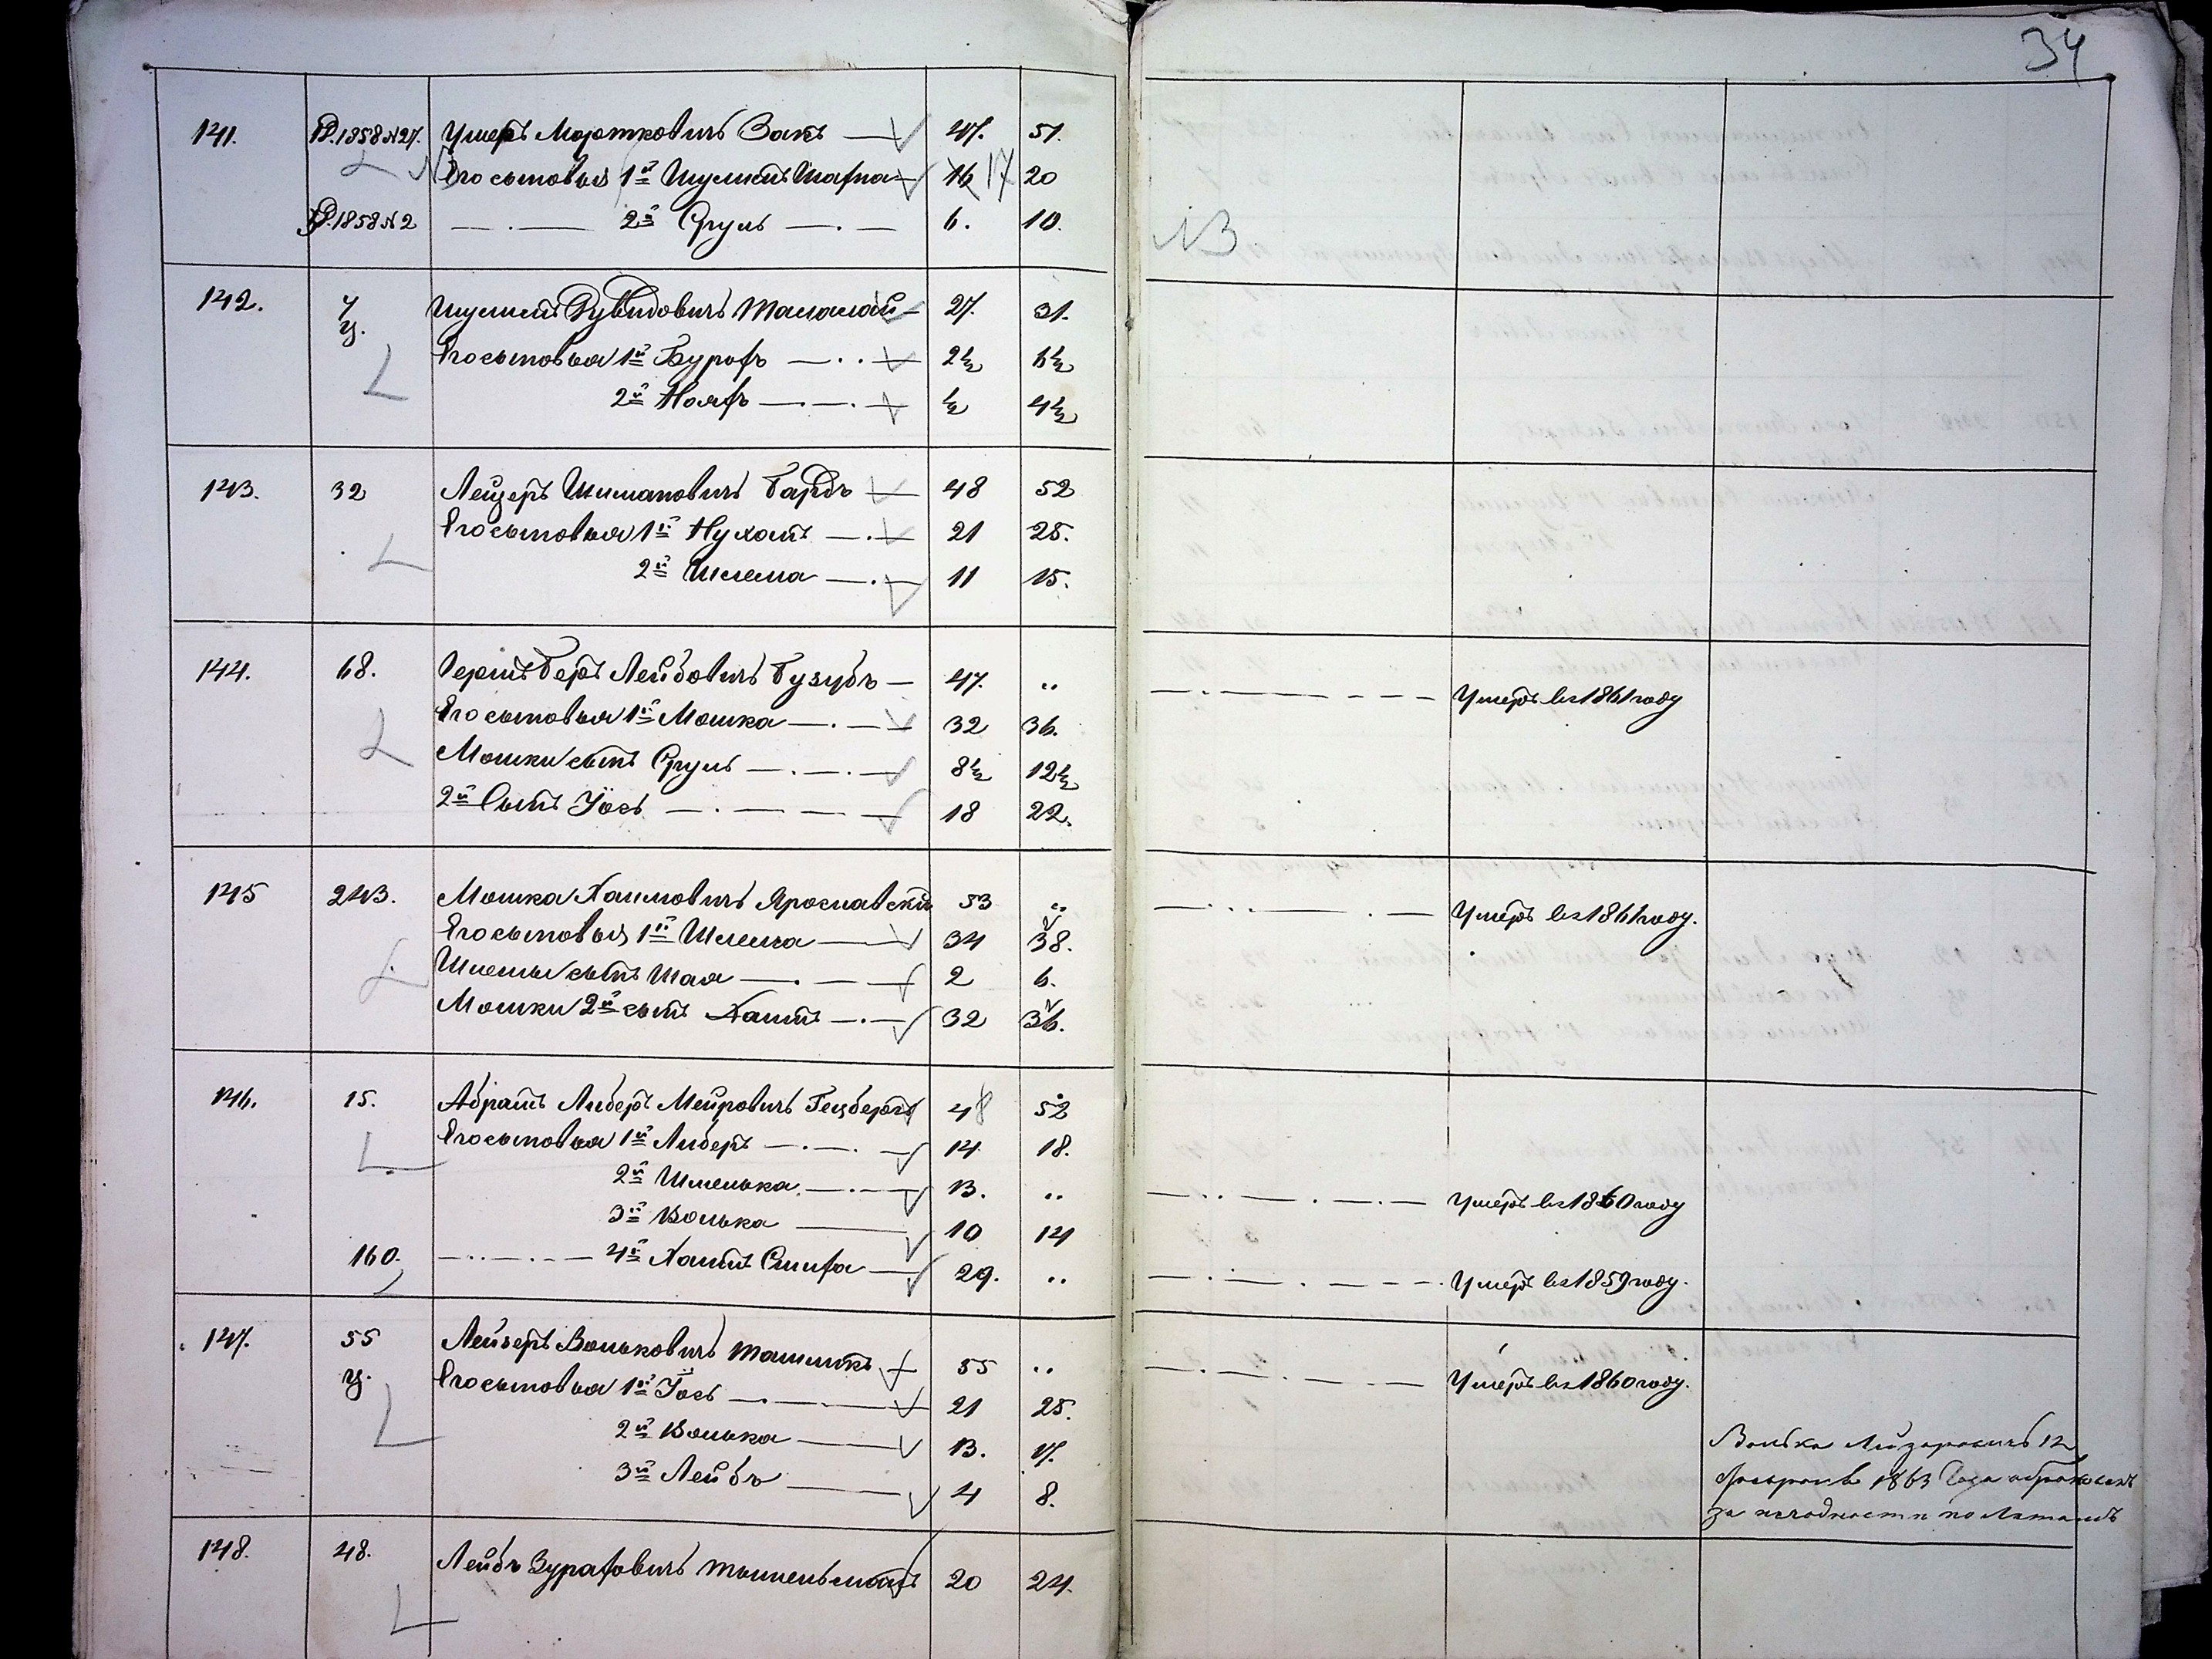 34
141. Р.1858 №27. Умеръ Мортковичъ Закъ 47. 51.
Его сыновья 1й Шулимъ Шафна 16 17 20
Р.1858 №2 2й Сруль 6. 10.
NB
142. 4 ц. Шулимъ Дувидовичъ 27. 31.
Его сыновья 1й Бурохъ 2½ 6½
2й Ноахъ ½ 4½
143. 32 Лейзеръ Шимановичъ Гарбъ 48 52
Его сыновья 1й Нухимъ 21 25.
2й Шлема 11 15.
144. 68. Гершъ Беръ Лейбовичъ 47. „ Умеръ въ 1861 году
Его сыновья 1й Мошка 32 36.
Мошки сынъ Сруль 8½ 12½
2й Сынъ Іосъ 18 22.
145 243. Мошка Хаимовичъ Ярославскій 53 „ Умеръ въ 1861 году.
Его сыновья 1й Шлема 34 38.
Шлемы сынъ Шая 2 6.
Мошки 2й сынъ Хаимъ 32 36.
146. 15. Абрамъ Либеръ Меировичъ 48 52
Его сыновья 1й Либеръ 14 18.
2й Шмелька 13. „ Умеръ въ 1860 году
3й Волька 10 14
160. 4й Хаимъ Симха 29. „ Умеръ въ 1859 году.
147. 55 ц. Лейзеръ Вольковичъ 55 „ Умеръ въ 1860 году.
Его сыновья 1й Іосъ 21 25.
2й Волька 13. 17.
3й Лейбъ 4 8.
Волька Лейзоровичъ 12
Февраля 1863 Года
за негодности по летамъ
148. 48. Лейбъ 20 24.